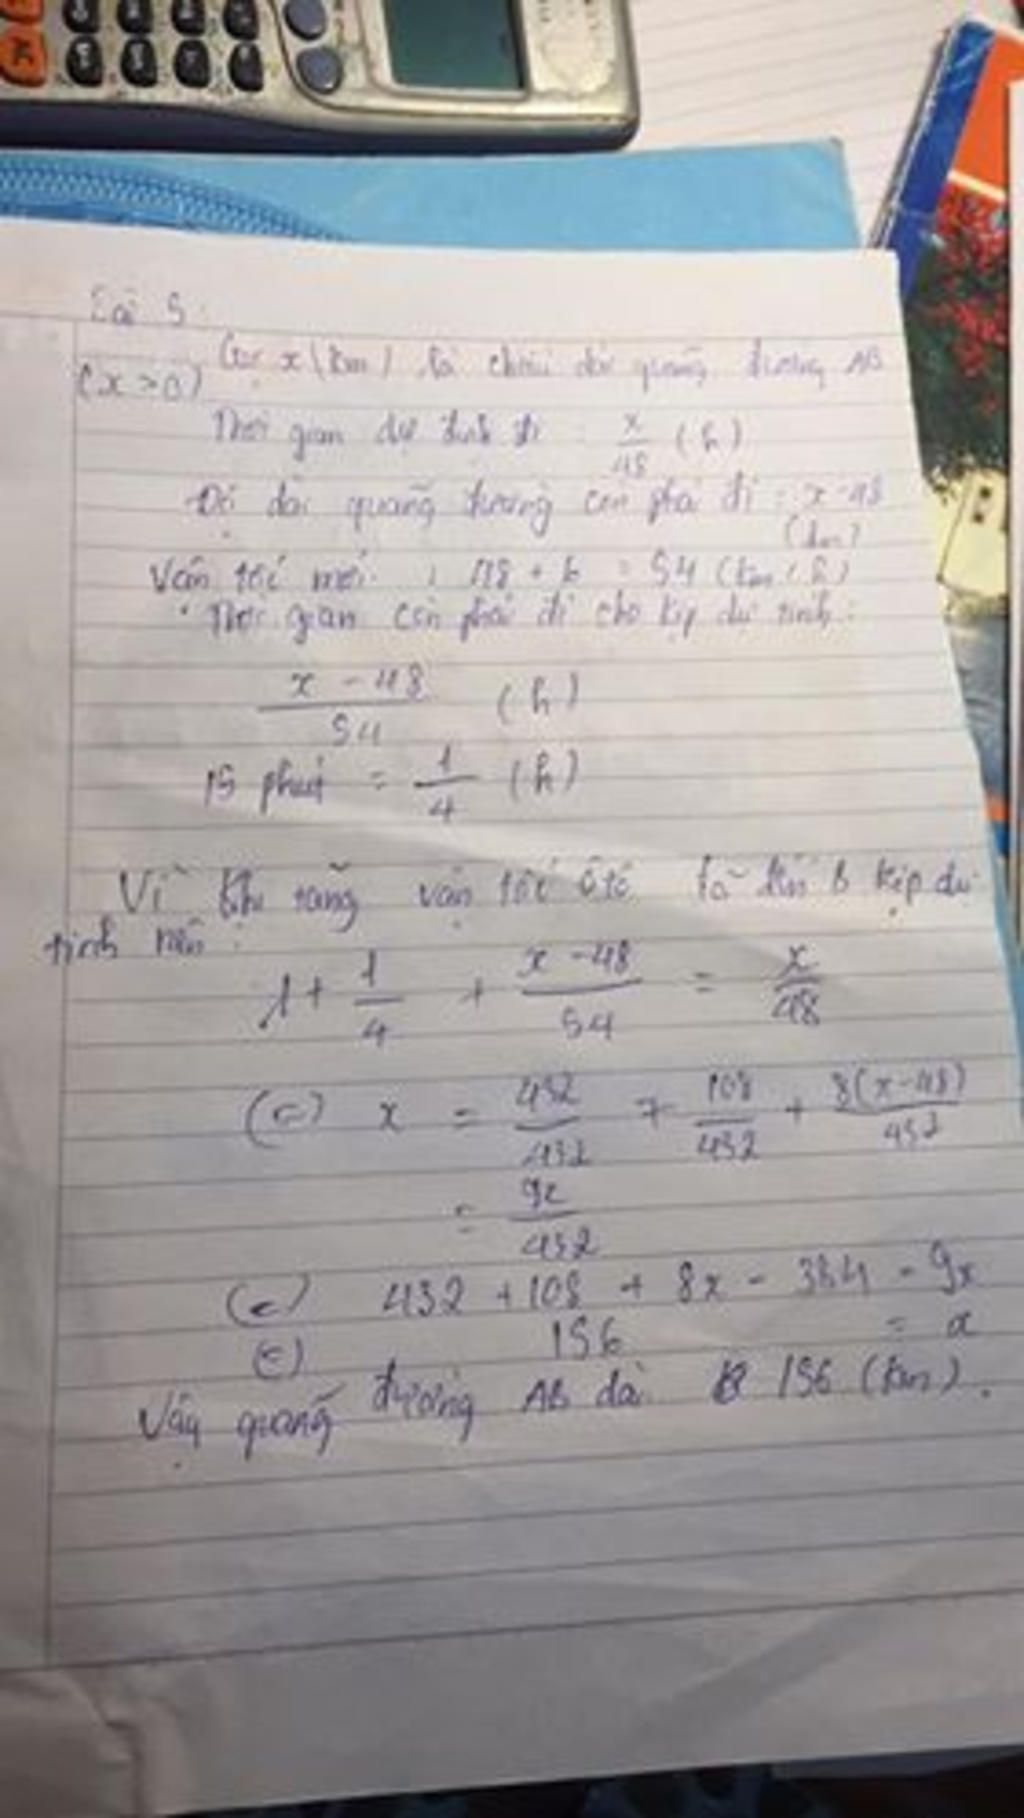 Bài 5:
Gọi x (km) là chiều dài quãng đường AB
(x > 0)
Thời gian dự định đi : x/48 (h)
Độ dài quãng đường còn phải đi : x - 48
(km)
Vận tốc mới : 48 + 6 = 54 (km/h)
Thời gian còn phải đi cho kịp dự tính:
x - 48 / 54 (h)
15 phút = 1/4 (h)
Vì khi tăng vận tốc ôtô đến B kịp dự
tính nên:
1 + 1/4 + x - 48 / 54 = x/48
(=) x = 432/432 + 108/432 + 8(x-48)/432
= 9x/432
(=) 432 + 108 + 8x - 384 = 9x
(=) 156 = x
Vậy quãng đường AB dài 156 (km).